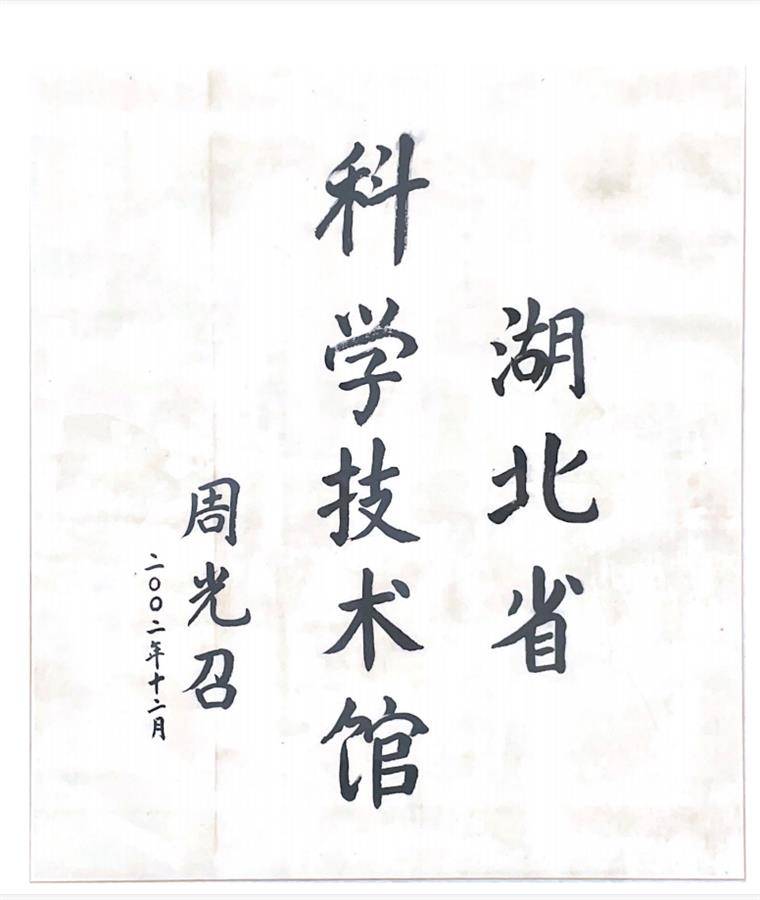 湖北省
科学技术馆
周光召
二〇〇二年十二月